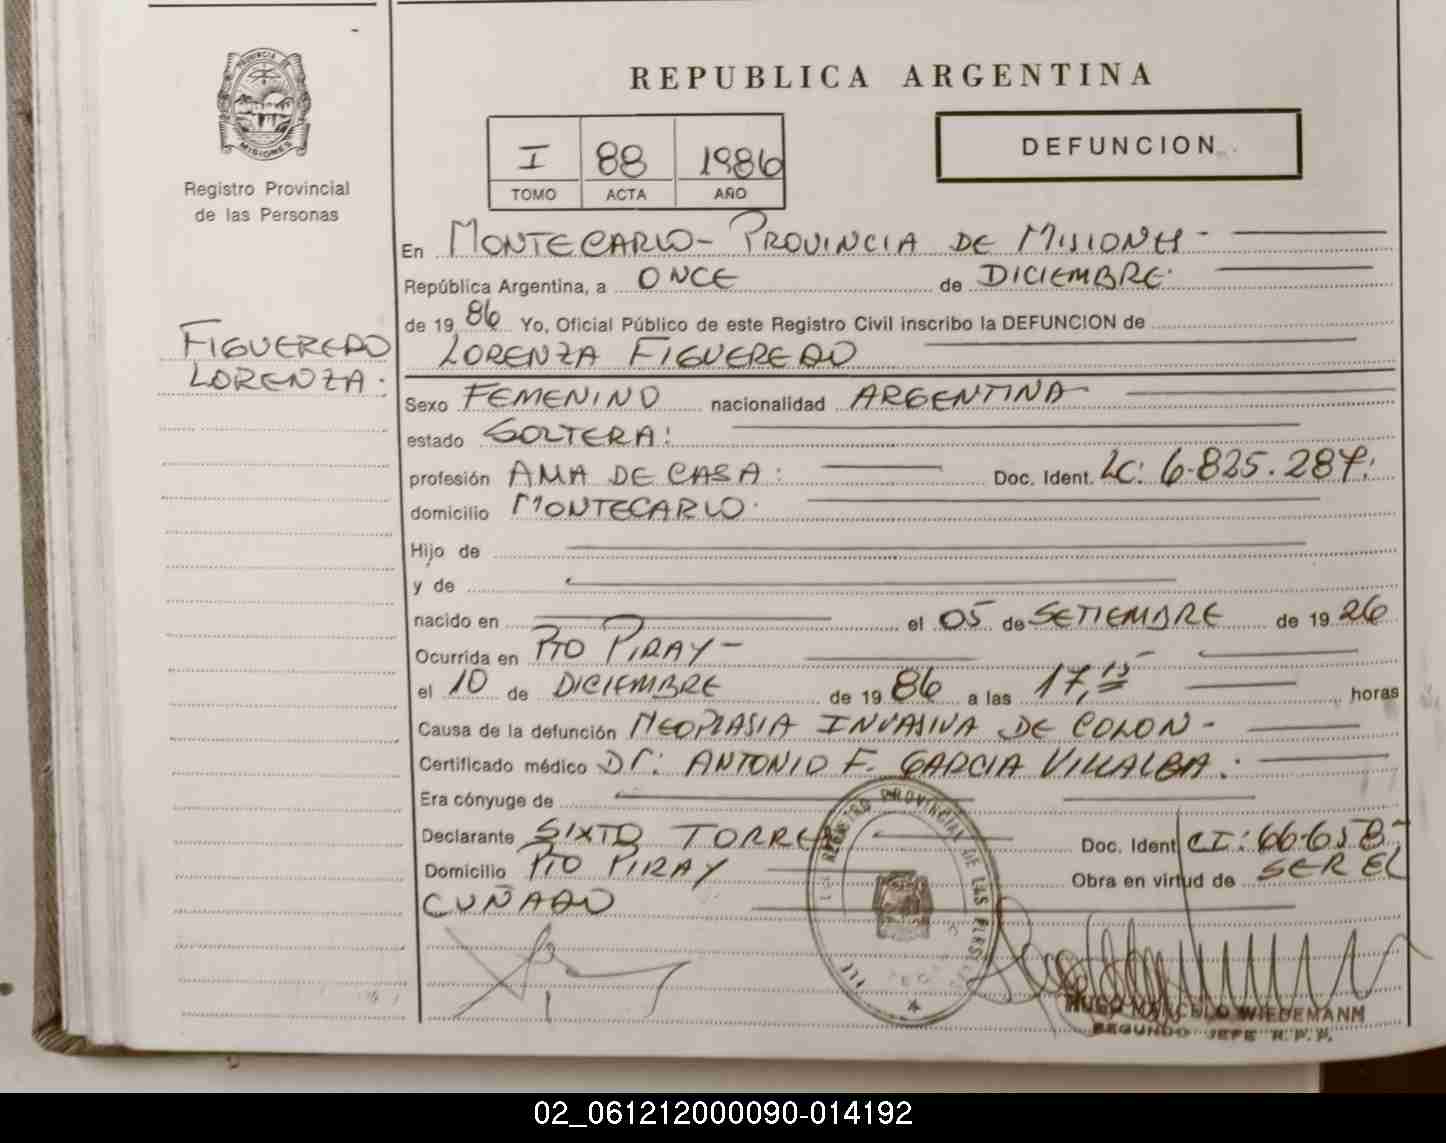 PROVINCIA DE
MISIONES
Registro Provincial
de las Personas
FIGUEREDO
LORENZA.
REPUBLICA ARGENTINA
I 88 1986
TOMO ACTA AÑO
DEFUNCION
En MONTECARLO - PROVINCIA DE MISIONES -
República Argentina, a ONCE de DICIEMBRE.
de 19 86 Yo, Oficial Público de este Registro Civil inscribo la DEFUNCION de
LORENZA FIGUEREDO
Sexo FEMENINO nacionalidad ARGENTINA
estado SOLTERA:
profesión AMA DE CASA: Doc. Ident. LC: 6.825.287.
domicilio MONTECARLO.
Hijo de
y de
nacido en el 05 de SETIEMBRE de 19 26
Ocurrida en PTO PIRAY -
el 10 de DICIEMBRE de 19 86 a las 17,15 horas
Causa de la defunción NEOPLASIA INVASIVA DE COLON -
Certificado médico Dr. ANTONIO F. GARCIA VILLALBA.
Era cónyuge de
Declarante SIXTO TORRES Doc. Ident CI: 66.658-
Domicilio PTO PIRAY Obra en virtud de SER EL
CUÑADO
REGISTRO PROVINCIAL DE LAS PERSONAS
HUGO MARCELO WIEDEMANN
SEGUNDO JEFE R.P.P.
02_061212000090-014192